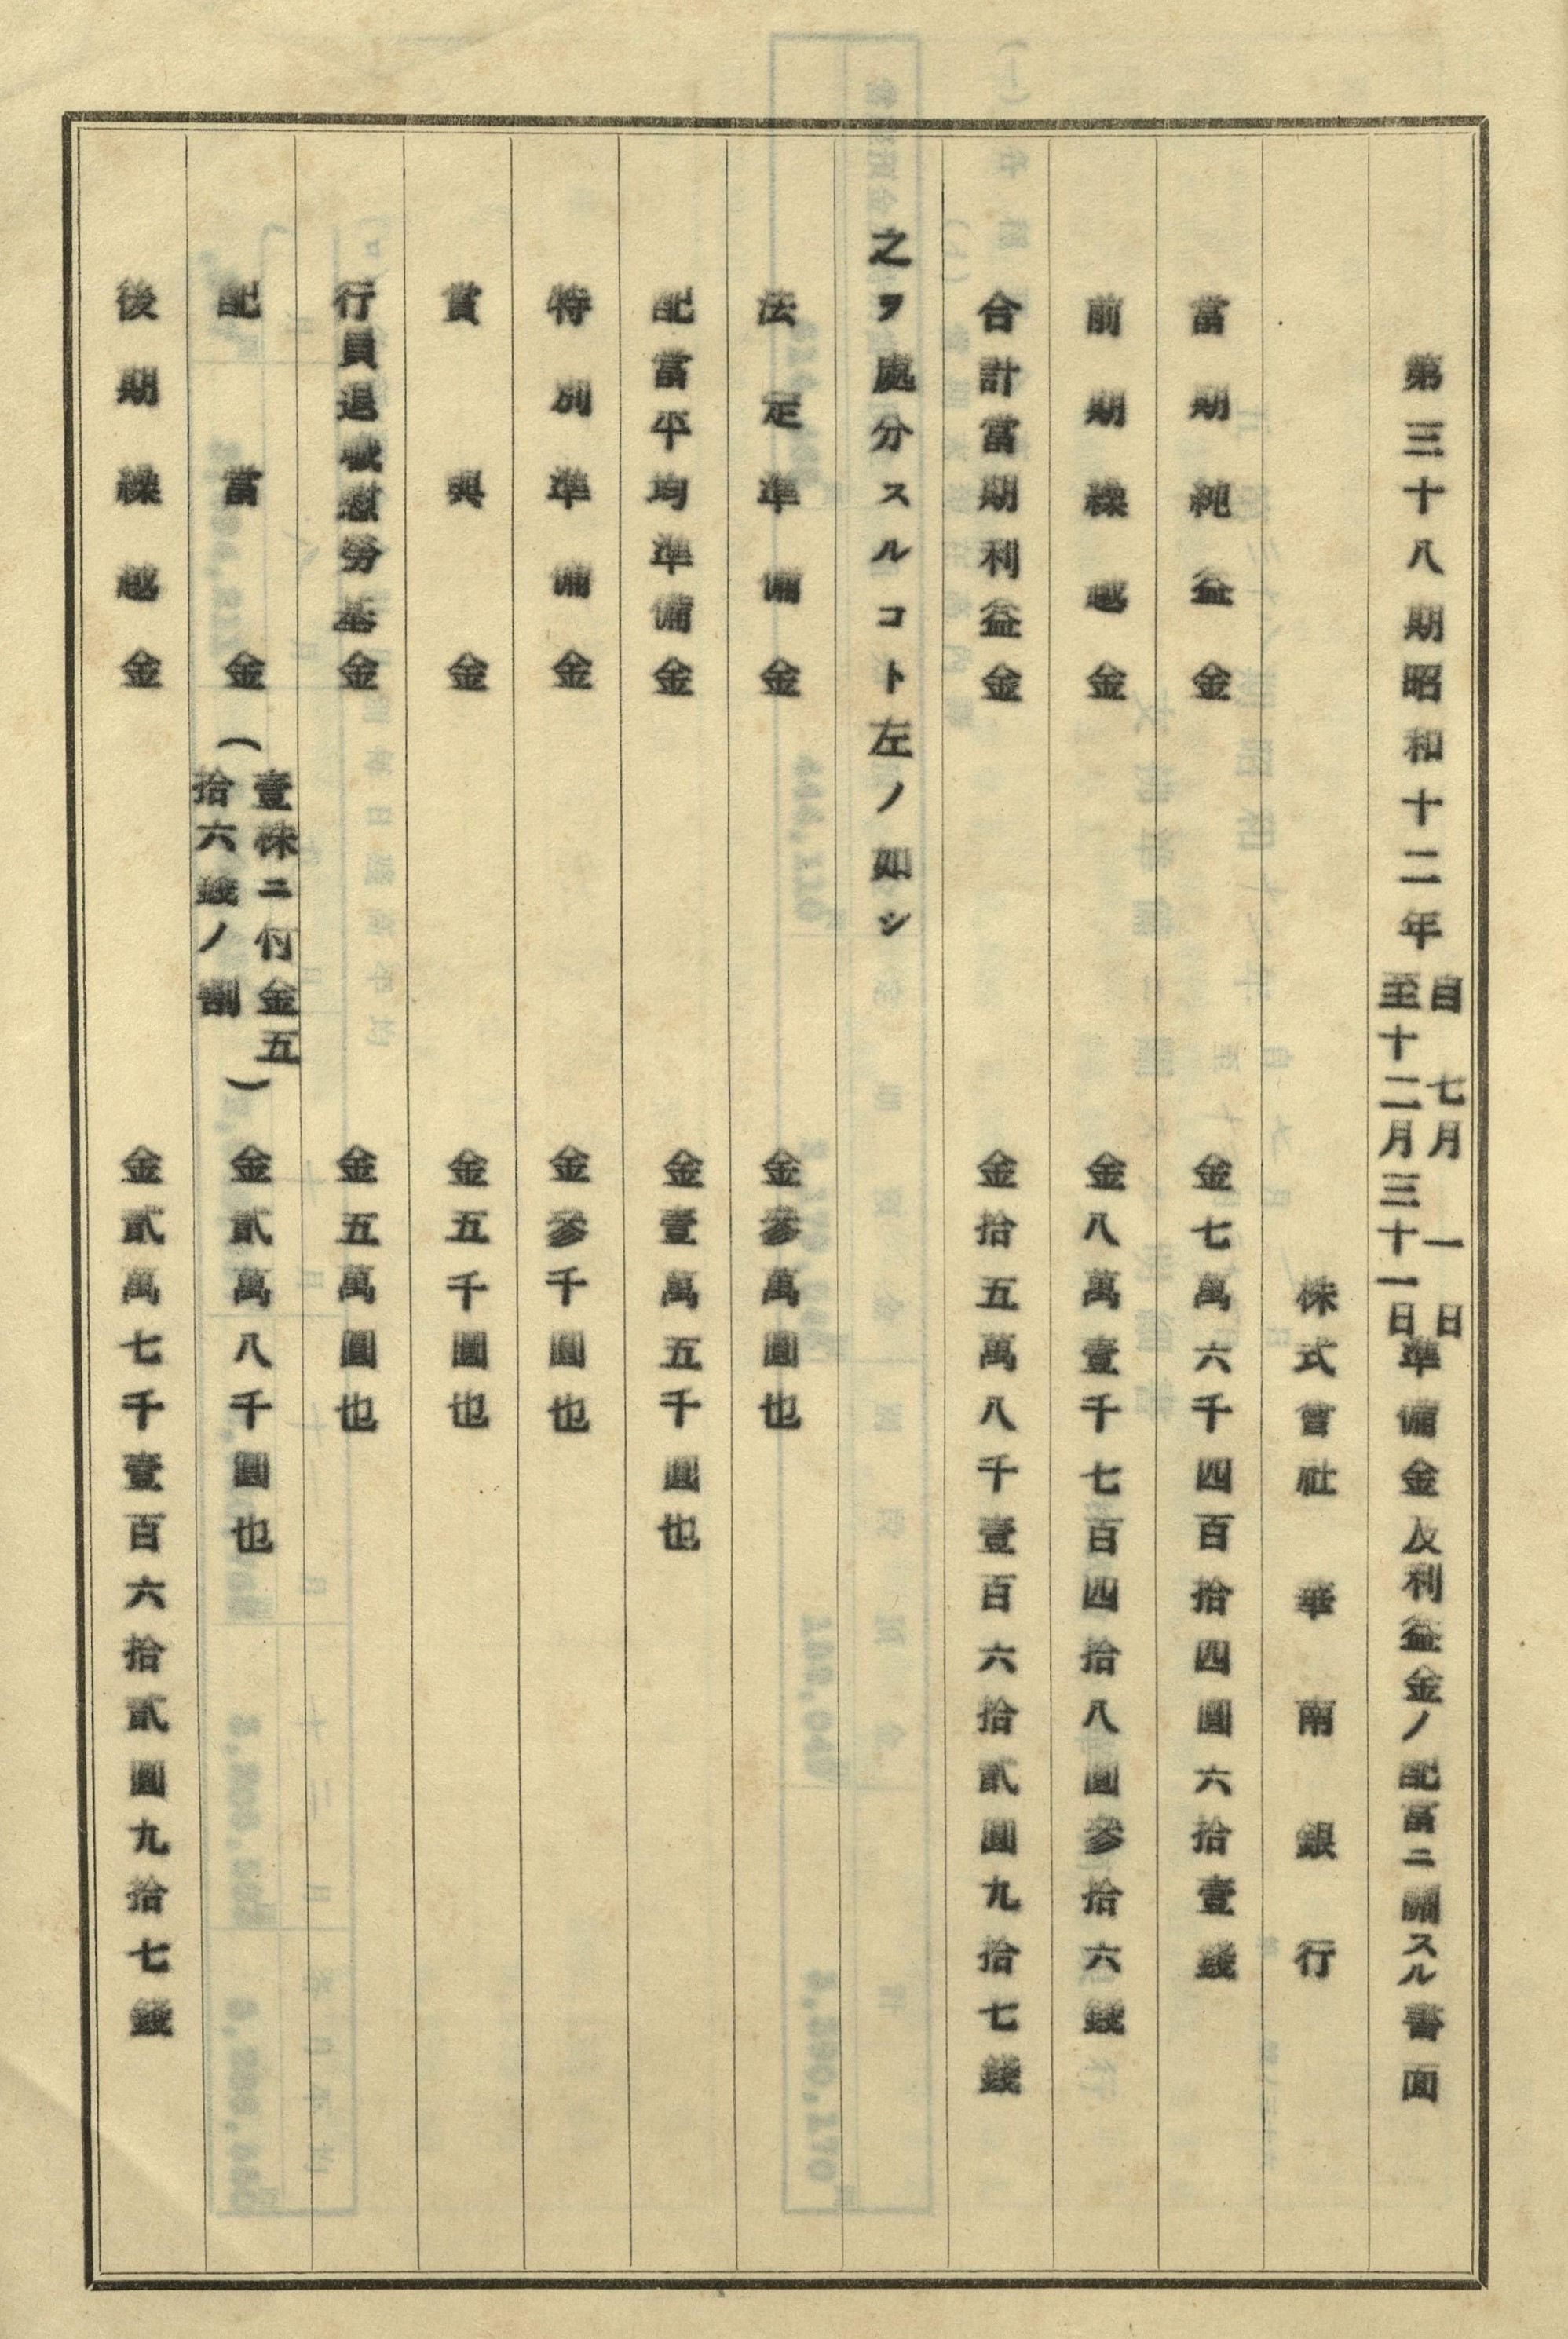 第三十八期昭和十二年自七月一日至十二月三十一日準備金及利益金ノ配當ニ關スル書面
株式會社華南銀行
當期純益金 金七萬六千四百拾四圓六拾壹錢
前期繰越金 金八萬壹千七百四拾八圓參拾六錢
合計當期利益金 金拾五萬八千壹百六拾貳圓九拾七錢
之ヲ處分スルコト左ノ如シ
法定準備金 金參萬圓也
配當平均準備金 金壹萬五千圓也
特別準備金 金參千圓也
賞與金 金五千圓也
行員退職慰勞基金 金五萬圓也
配當金(壹株ニ付金五拾六錢ノ割) 金貳萬八千圓也
後期繰越金 金貳萬七千壹百六拾貳圓九拾七錢